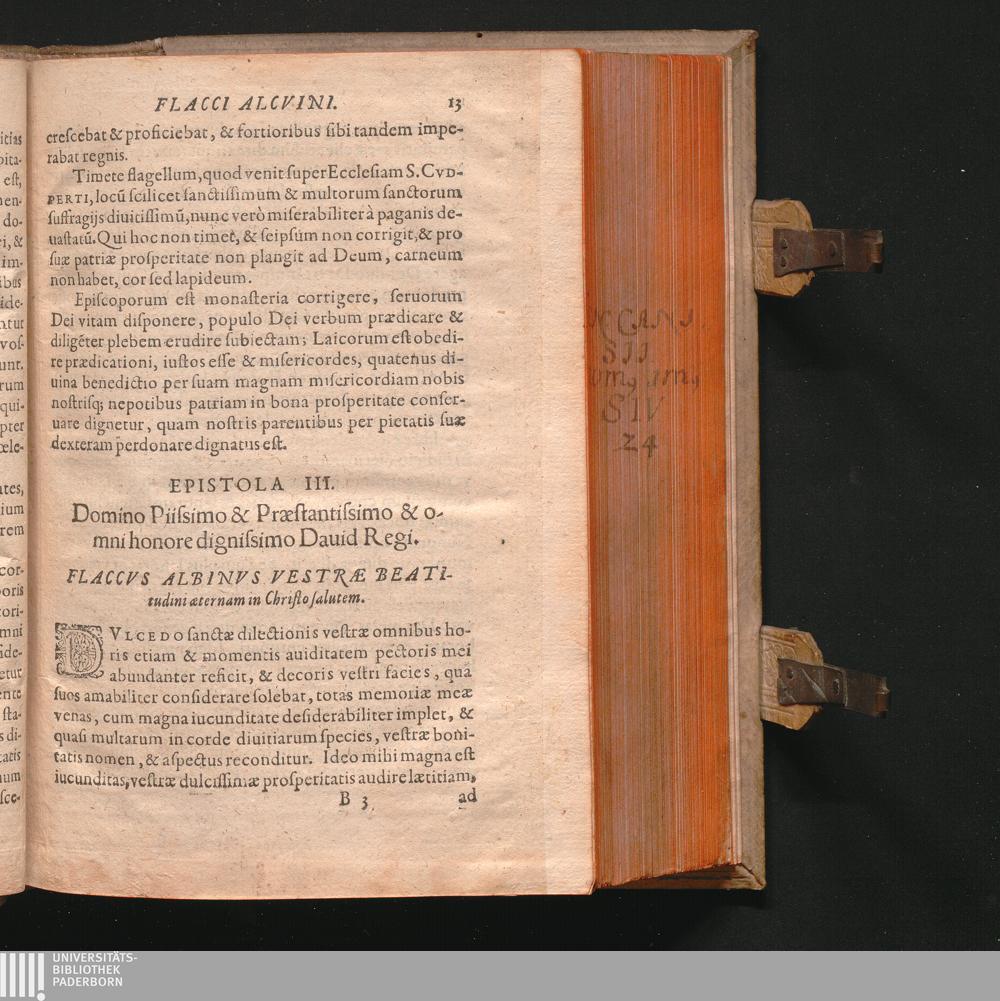 FLACCI ALCVINI. 13
creſcebat & proficiebat, & fortioribus ſibi tandem impe-
rabat regnis.
Timete flagellum, quod venit ſuper Eccleſiam S. CVD-
PERTI, locū ſcilicet ſanctiſſimum & multorum ſanctorum
ſuffragijs diuitiſſimū, nunc verò miſerabiliter à paganis de-
uaſtatū. Qui hoc non timet, & ſeipſum non corrigit, & pro
ſuæ patriæ proſperitate non plangit ad Deum, carneum
non habet, cor ſed lapideum.
Epiſcoporum eſt monaſteria corrigere, ſeruorum
Dei vitam diſponere, populo Dei verbum prædicare &
diligẽter plebem erudire ſubiectam; Laicorum eſt obedi-
re prædicationi, iuſtos eſſe & miſericordes, quatenus di-
uina benedictio per ſuam magnam miſericordiam nobis
noſtriſq; nepotibus patriam in bona proſperitate conſer-
uare dignetur, quam noſtris parentibus per pietatis ſuæ
dexteram perdonare dignatus eſt.
EPISTOLA III.
Domino Piiſsimo & Præſtantiſsimo & o-
mni honore digniſsimo Dauid Regi.
FLACCVS ALBINVS VESTRÆ BEATI-
tudini æternam in Chriſto ſalutem.
DVLCEDO ſanctæ dilectionis veſtræ omnibus ho-
ris etiam & momentis auiditatem pectoris mei
abundanter reficit, & decoris veſtri facies, qua
ſuos amabiliter conſiderare ſolebat, totas memoriæ meæ
venas, cum magna iucunditate deſiderabiliter implet, &
quaſi multarum in corde diuitiarum ſpecies, veſtræ boni-
tatis nomen, & aſpectus reconditur. Ideo mihi magna eſt
iucunditas, veſtræ dulciſſimæ proſperitatis audire lætitiam,
B 3 ad
SIV
24
UNIVERSITÄTS-
BIBLIOTHEK
PADERBORN